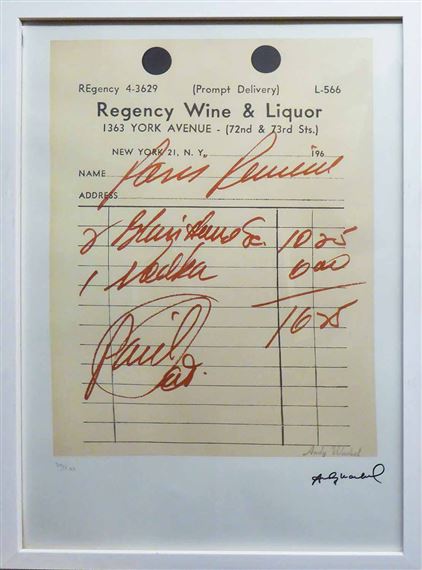 REgency 4-3629 (Prompt Delivery) L-566
Regency Wine & Liquor
1363 YORK AVENUE - (72nd & 73rd Sts.)
NEW YORK 21, N. Y., 196
NAME
ADDRESS
2 10 25
1 Vodka 6 00
16 25
Paid
Andy Warhol
Andy Warhol